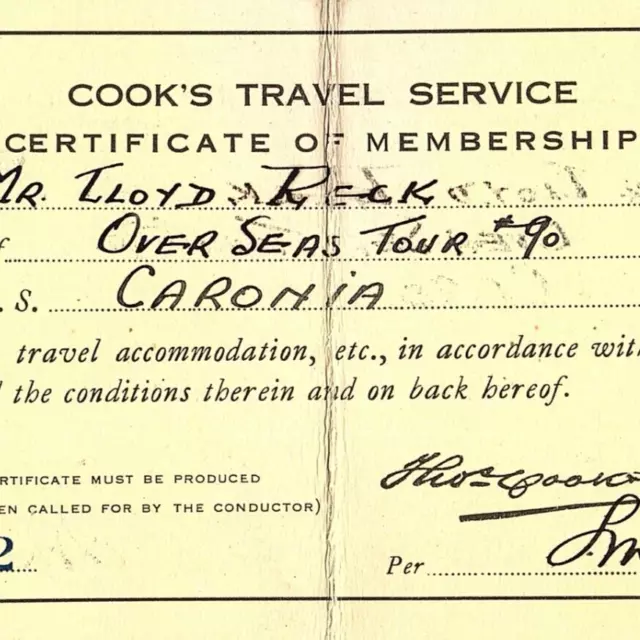 COOK'S TRAVEL SERVICE
CERTIFICATE OF MEMBERSHIP
MR. LLOYD RECK
OVER SEAS TOUR #90
S. CARONIA
travel accommodation, etc., in accordance with
the conditions therein and on back hereof.
RTIFICATE MUST BE PRODUCED
EN CALLED FOR BY THE CONDUCTOR)
Thos Cook
2
Per